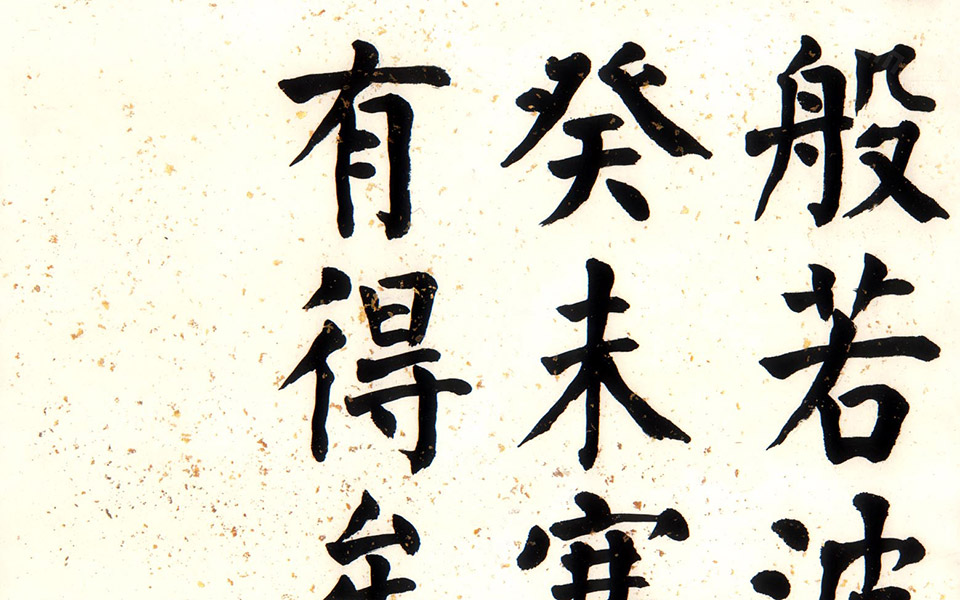 般若波
癸未寒
有得牟